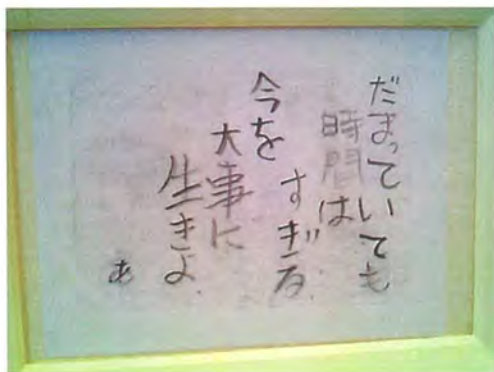 だまっていても
時間は
すぎる
今を
大事に
生きよ
あ